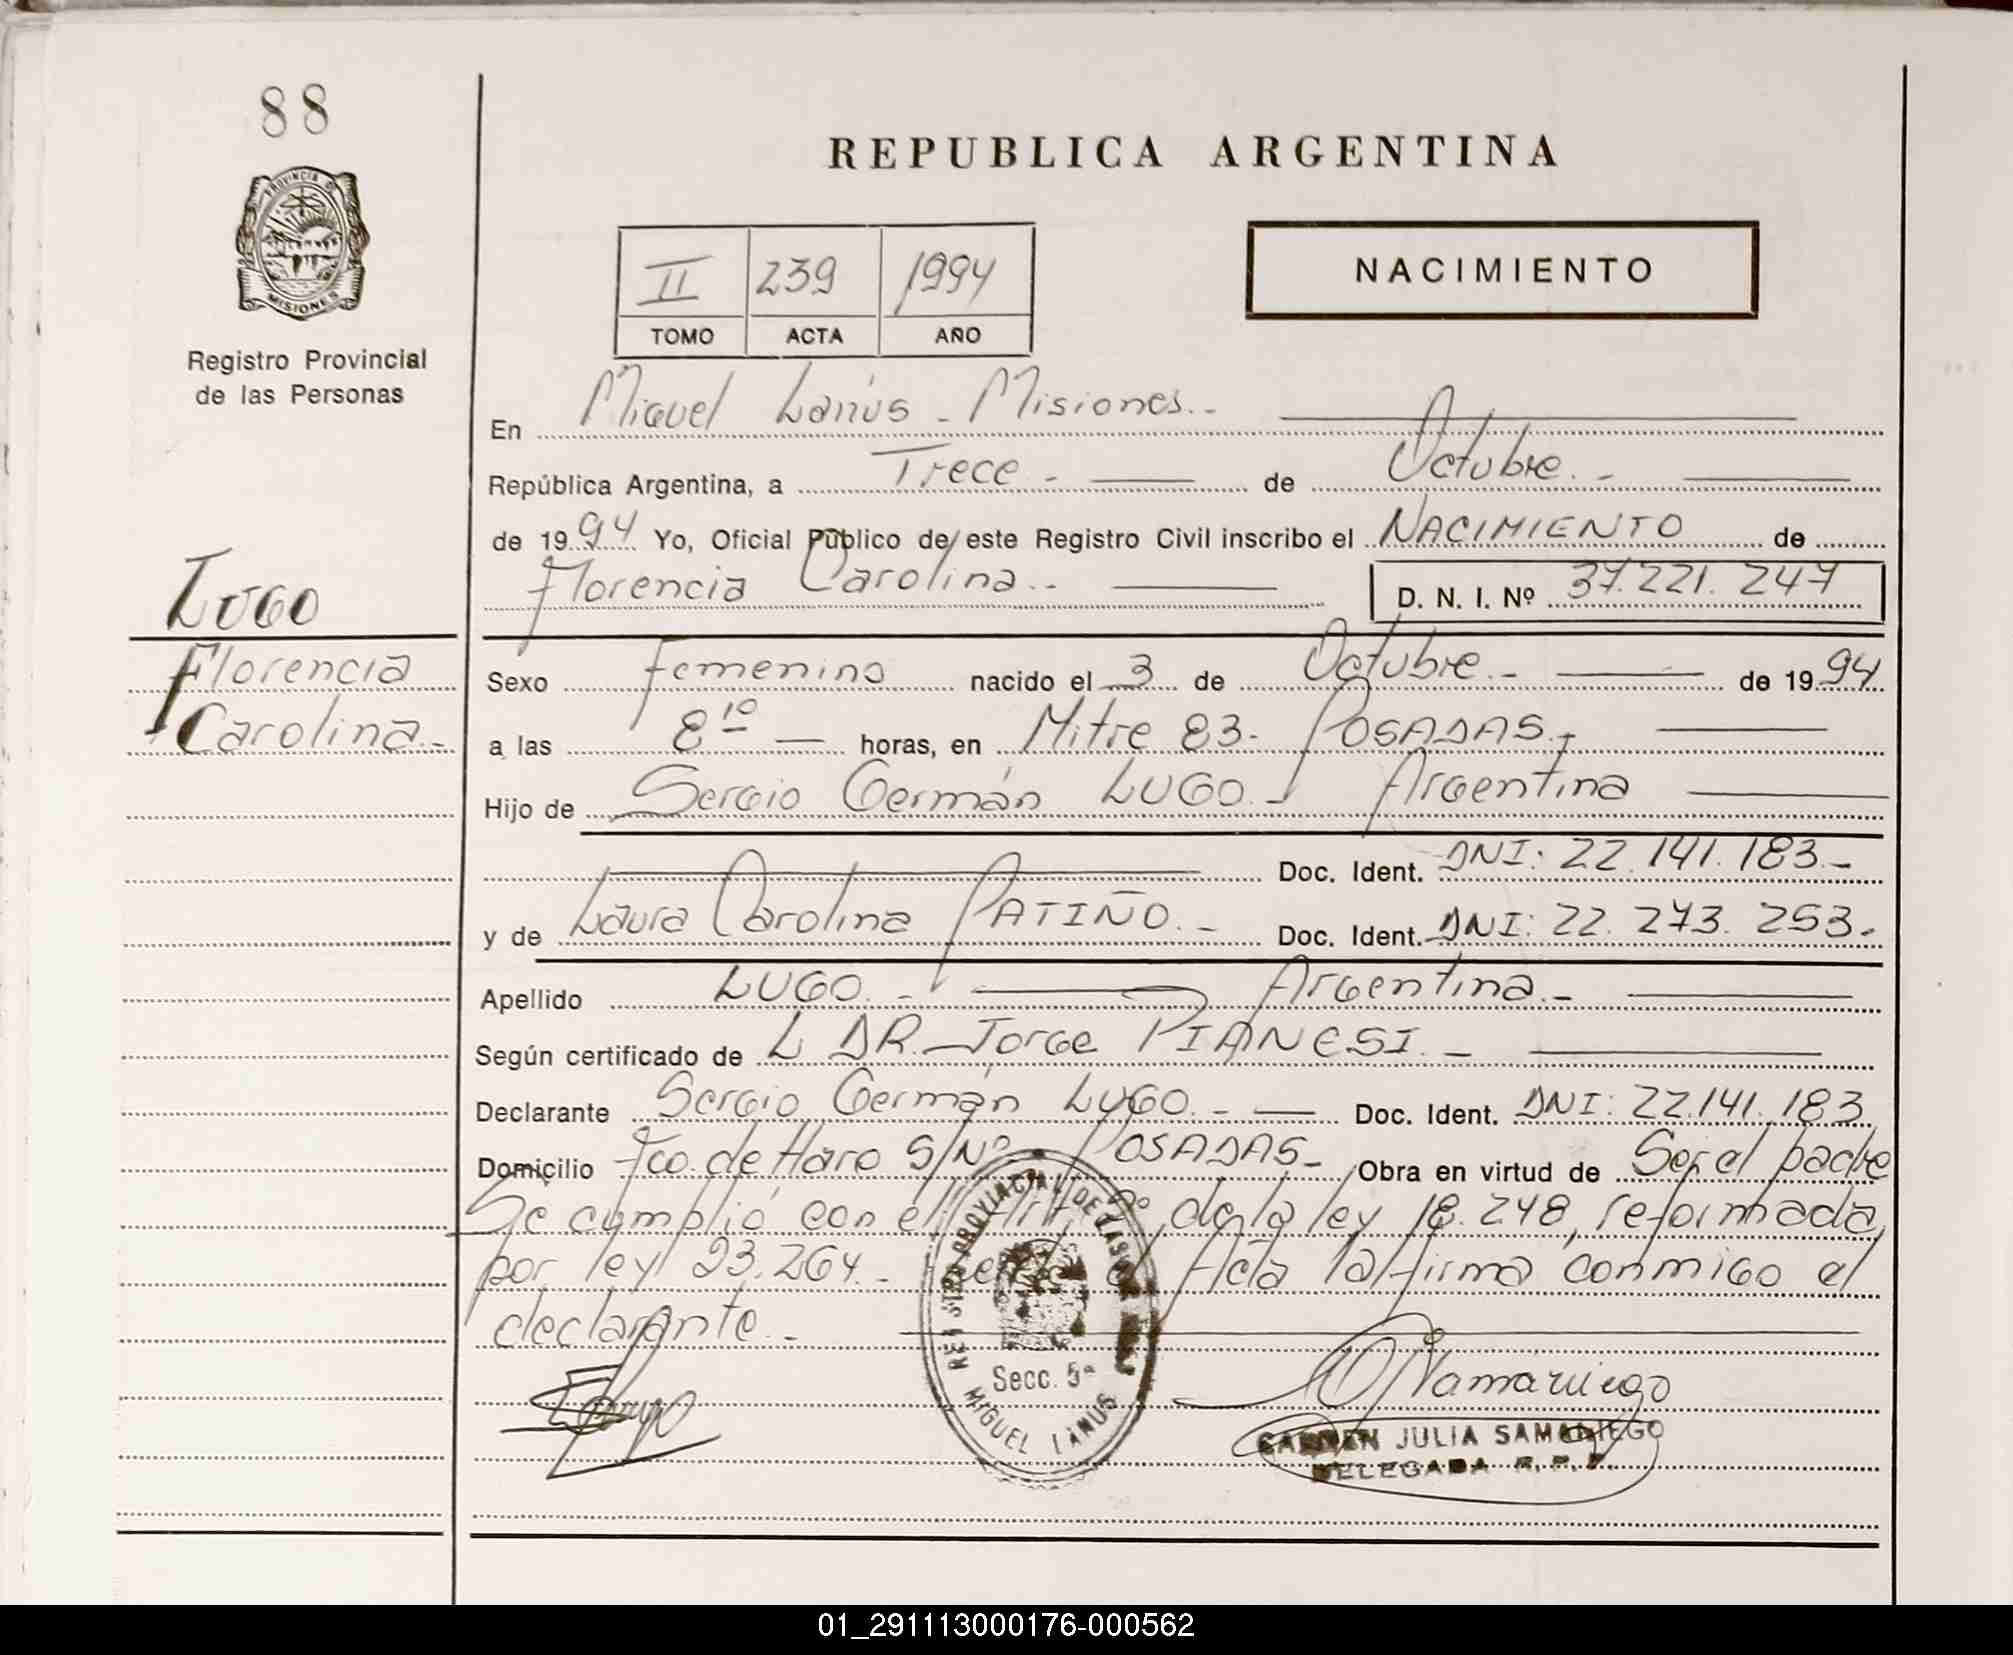 88
PROVINCIA DE
MISIONES
Registro Provincial
de las Personas
REPUBLICA ARGENTINA
II 239 1994
TOMO ACTA AÑO
NACIMIENTO
En Miguel Lanús - Misiones.-
República Argentina, a Trece.- de Octubre.-
de 1994 Yo, Oficial Público de este Registro Civil inscribo el NACIMIENTO de
Florencia Carolina.-
D. N. I. Nº 37.221.247
LUGO
Florencia
Carolina.-
Sexo Femenino nacido el 3 de Octubre.- de 1994
a las 8 10 horas, en Mitre 83- POSADAS.-
Hijo de Sergio Germán LUGO.- Argentina
Doc. Ident. DNI: 22.141.183.-
y de Laura Carolina PATIÑO.- Doc. Ident. DNI: 22.273.253.-
Apellido LUGO.- Argentina.-
Según certificado de L DR. Jorge PIANESI.-
Declarante Sergio Germán LUGO.- Doc. Ident. DNI: 22.141.183
Domicilio Fco. de Haro S/Nº POSADAS- Obra en virtud de Ser el padre
Se cumplió con el Art. de la ley 18.248, reformada
por ley 23.264.- el Acta la firma conmigo el
declarante.-
REGISTRO PROVINCIAL DE LAS
Secc. 5ª
MIGUEL LANUS
CARMEN JULIA SAMANIEGO
DELEGADA R. P. P.
01_291113000176-000562